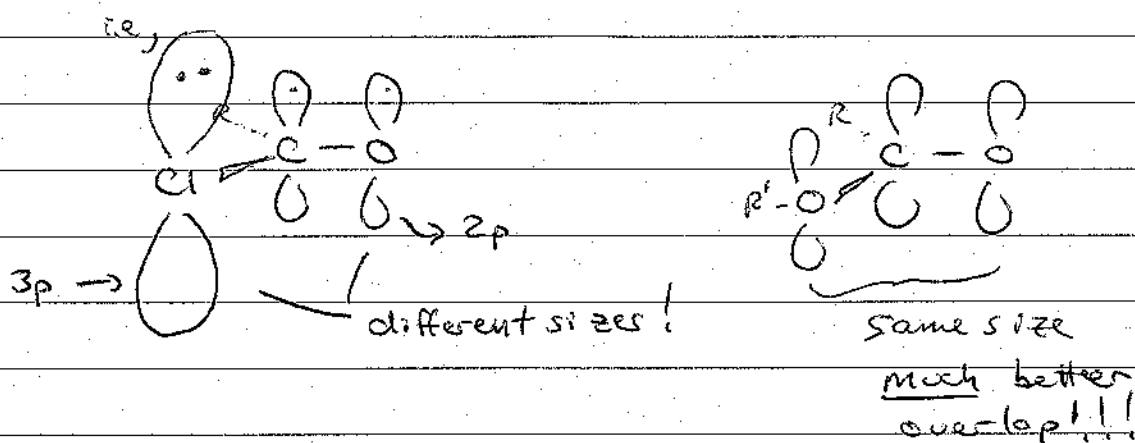 i.e,
R
C — O
Cl
R
C — O
R' - O
→ 2p
3p →
different sizes!
same size
Much better
overlap!!!